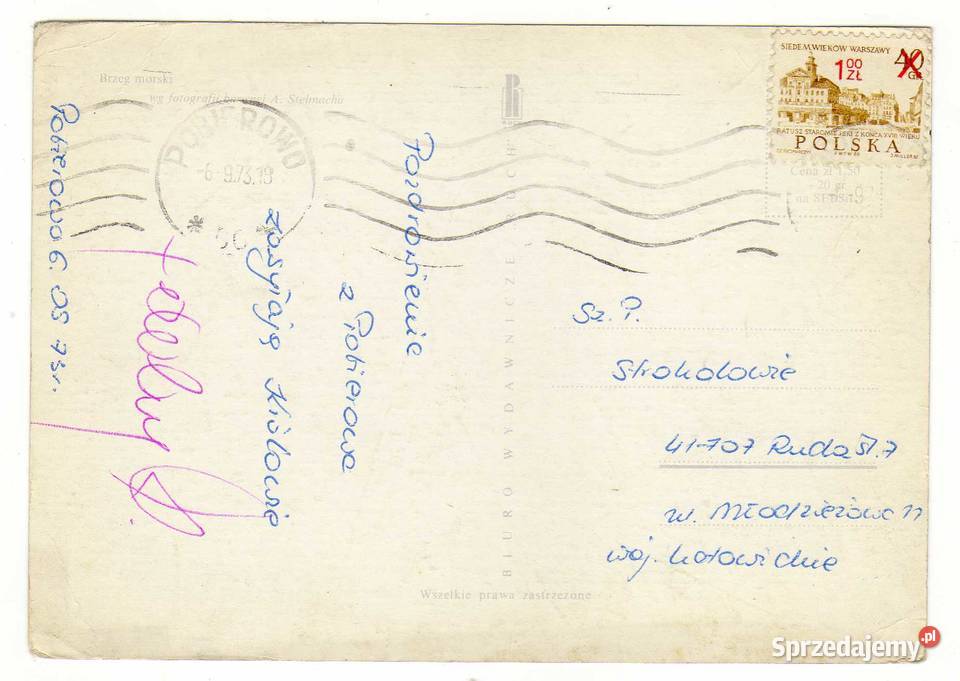 Brzeg morski
wg fotografii barwnej A. Stelmacha
POBIEROWO
-6-9.73.19
SIEDEM WIEKÓW WARSZAWY
40 GR
1 00 ZŁ
RATUSZ STAROMIEJSKI Z KOŃCA XVIII WIEKU
POLSKA
Cena zł 1,50
20 gr
na SFOS
BIURO WYDAWNICZE RUCH
Pozdrowienia
z Pobierowa
zasyłają
Pobierowa 6. 09 73r.
Sz. P.
41-707 Ruda Śl. 7
Młodzieżowa 11
woj. katowickie
Wszelkie prawa zastrzeżone
Sprzedajemy.pl